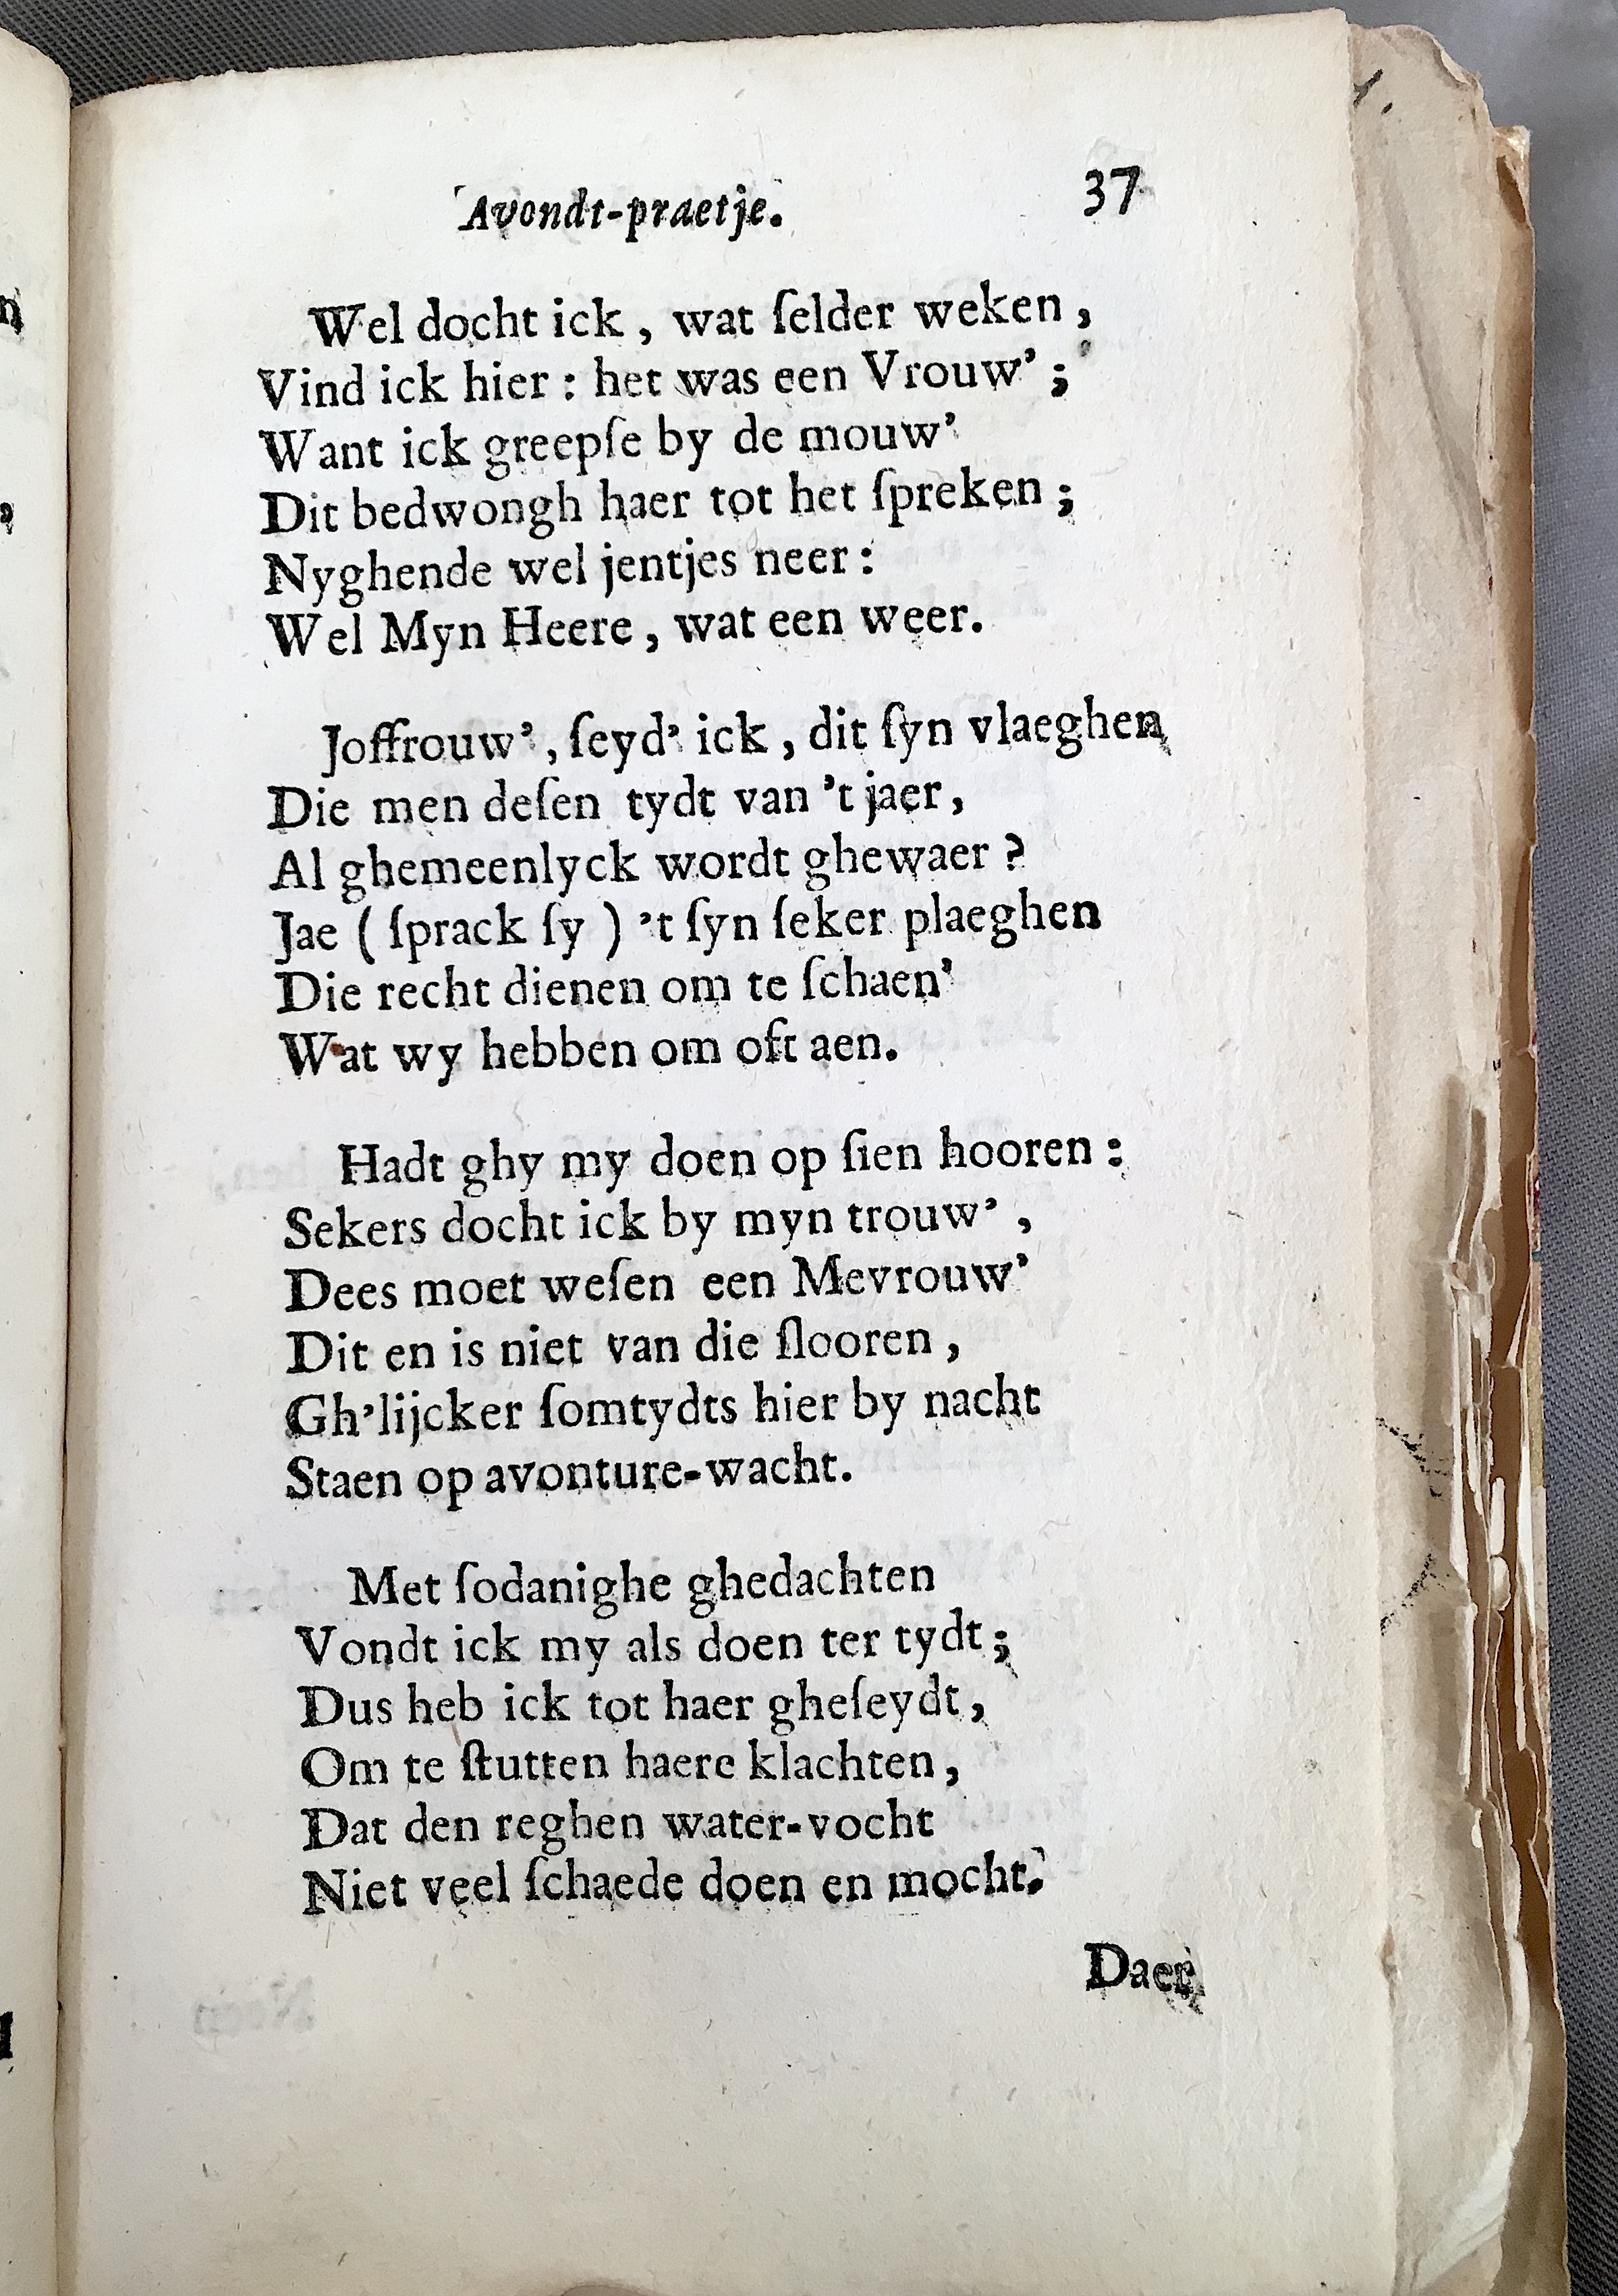 Avondt-praetje. 37
Wel docht ick, wat ſelder weken,
Vind ick hier: het was een Vrouw’;
Want ick greepſe by de mouw’
Dit bedwongh haer tot het ſpreken;
Nyghende wel jentjes neer:
Wel Myn Heere, wat een weer.
Joffrouw’, ſeyd’ ick, dit ſyn vlaeghen
Die men deſen tydt van ’t jaer,
Al ghemeenlyck wordt ghewaer?
Jae ( ſprack ſy ) ’t ſyn ſeker plaeghen
Die recht dienen om te ſchaen’
Wat wy hebben om oft aen.
Hadt ghy my doen op ſien hooren:
Sekers docht ick by myn trouw’,
Dees moet weſen een Mevrouw’
Dit en is niet van die ſlooren,
Gh’lijcker ſomtydts hier by nacht
Staen op avonture-wacht.
Met ſodanighe ghedachten
Vondt ick my als doen ter tydt;
Dus heb ick tot haer gheſeydt,
Om te ſtutten haere klachten,
Dat den reghen water-vocht
Niet veel ſchaede doen en mocht.
Daer